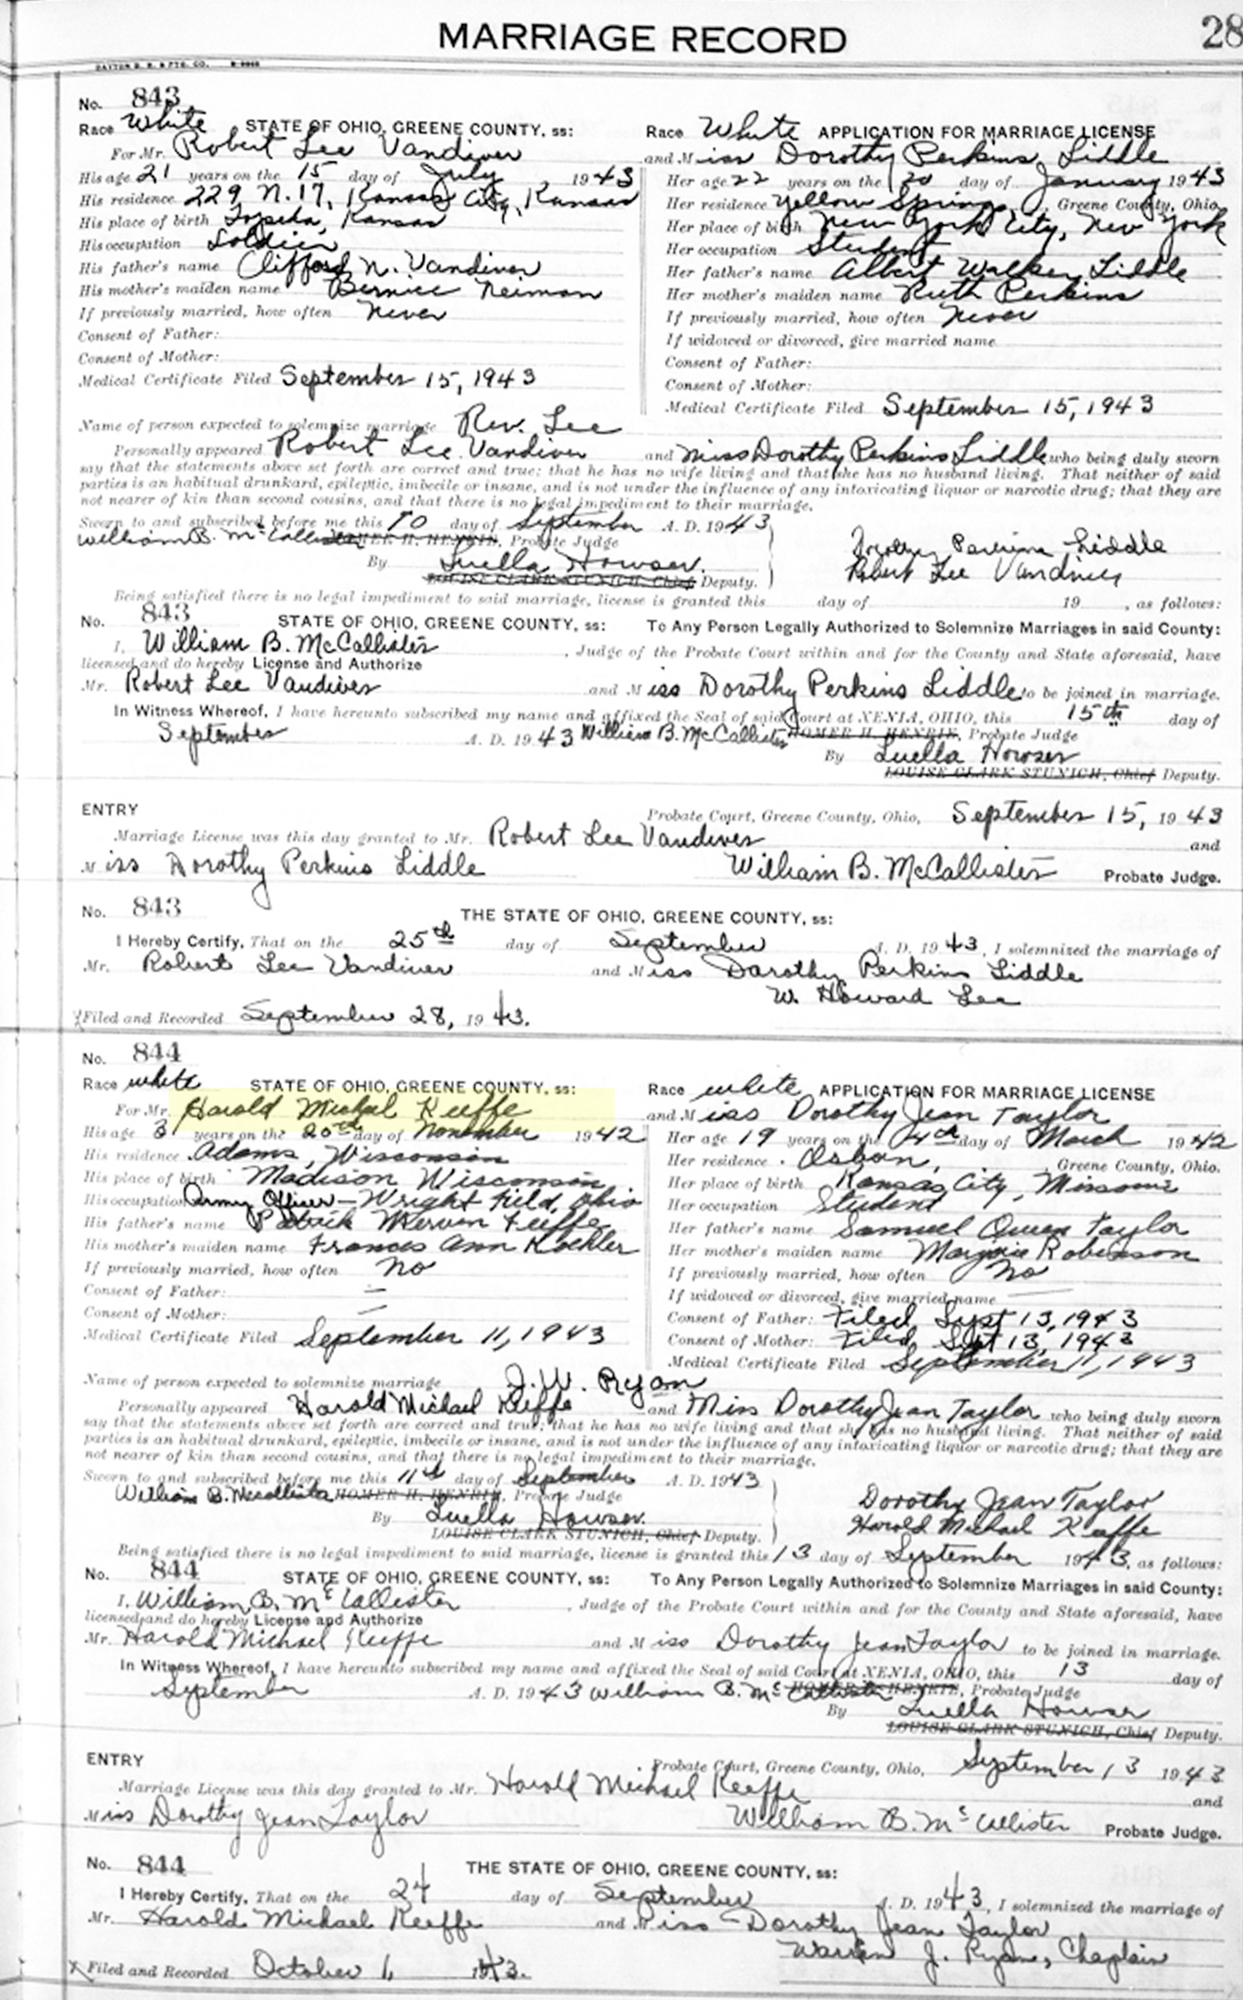 MARRIAGE RECORD
28
DAYTON B. B. & PTG. CO.
No. 843
Race White STATE OF OHIO, GREENE COUNTY, ss:
For Mr. Robert Lee Vandiver
His age 21 years on the 15 day of July 1943
His residence 229 N. 17, Kansas City, Kansas
His place of birth Topeka, Kansas
His occupation Soldier
His father's name Clifford N. Vandiver
His mother's maiden name Bernice Neiman
If previously married, how often Never
Consent of Father:
Consent of Mother:
Medical Certificate Filed September 15, 1943
Race White APPLICATION FOR MARRIAGE LICENSE
and Miss Dorothy Perkins Liddle
Her age 22 years on the 20 day of January 1943
Her residence Yellow Springs, Greene County, Ohio
Her place of birth New York City, New York
Her occupation Student
Her father's name Albert Walker Liddle
Her mother's maiden name Ruth Perkins
If previously married, how often Never
If widowed or divorced, give married name
Consent of Father:
Consent of Mother:
Medical Certificate Filed September 15, 1943
Name of person expected to solemnize marriage Rev. Lee
Personally appeared Robert Lee Vandiver and Miss Dorothy Perkins Liddle who being duly sworn
say that the statements above set forth are correct and true; that he has no wife living and that she has no husband living. That neither of said
parties is an habitual drunkard, epileptic, imbecile or insane, and is not under the influence of any intoxicating liquor or narcotic drug; that they are
not nearer of kin than second cousins, and that there is no legal impediment to their marriage.
Sworn to and subscribed before me this 10 day of September A. D. 1943
William B. McCallister HOMER H. HENRIE, Probate Judge
By Luella Howser
LOUISE CLARK STUNICH, Chief Deputy.
Dorothy Perkins Liddle
Robert Lee Vandiver
Being satisfied there is no legal impediment to said marriage, license is granted this day of 19 , as follows:
No. 843 STATE OF OHIO, GREENE COUNTY, ss: To Any Person Legally Authorized to Solemnize Marriages in said County:
I, William B. McCallister, Judge of the Probate Court within and for the County and State aforesaid, have
licensed and do hereby License and Authorize
Mr. Robert Lee Vandiver and Miss Dorothy Perkins Liddle to be joined in marriage.
In Witness Whereof, I have hereunto subscribed my name and affixed the Seal of said Court at XENIA, OHIO, this 15th day of
September A. D. 1943 William B. McCallister HOMER H. HENRIE, Probate Judge
By Luella Howser
LOUISE CLARK STUNICH, Chief Deputy.
ENTRY Probate Court, Greene County, Ohio, September 15, 1943
Marriage License was this day granted to Mr. Robert Lee Vandiver and
Miss Dorothy Perkins Liddle William B. McCallister Probate Judge.
No. 843 THE STATE OF OHIO, GREENE COUNTY, ss:
I Hereby Certify, That on the 25th day of September A. D. 1943, I solemnized the marriage of
Mr. Robert Lee Vandiver and Miss Dorothy Perkins Liddle
W. Howard Lee
Filed and Recorded September 28, 1943.
No. 844
Race white STATE OF OHIO, GREENE COUNTY, ss:
For Mr. Harold Michael Keeffe
His age 31 years on the 20th day of November 1942
His residence Adams, Wisconsin
His place of birth Madison Wisconsin
His occupation Army Officer - Wright Field, Ohio
His father's name Patrick Merven Keeffe
His mother's maiden name Frances Ann Kochler
If previously married, how often No
Consent of Father: -
Consent of Mother: -
Medical Certificate Filed September 11, 1943
Race white APPLICATION FOR MARRIAGE LICENSE
and Miss Dorothy Jean Taylor
Her age 19 years on the 4th day of March 1942
Her residence Osborn, Greene County, Ohio.
Her place of birth Kansas City, Missouri
Her occupation Student
Her father's name Samuel Owen Taylor
Her mother's maiden name Marjorie Robinson
If previously married, how often No
If widowed or divorced, give married name
Consent of Father: Filed, Sept 13, 1943
Consent of Mother: Filed, Sept 13, 1943
Medical Certificate Filed September 11, 1943
Name of person expected to solemnize marriage J. W. Ryan
Personally appeared Harold Michael Keeffe and Miss Dorothy Jean Taylor who being duly sworn
say that the statements above set forth are correct and true; that he has no wife living and that she has no husband living. That neither of said
parties is an habitual drunkard, epileptic, imbecile or insane, and is not under the influence of any intoxicating liquor or narcotic drug; that they are
not nearer of kin than second cousins, and that there is no legal impediment to their marriage.
Sworn to and subscribed before me this 11th day of September A. D. 1943
William B. McCallister HOMER H. HENRIE, Probate Judge
By Luella Howser
LOUISE CLARK STUNICH, Chief Deputy.
Dorothy Jean Taylor
Harold Michael Keeffe
Being satisfied there is no legal impediment to said marriage, license is granted this 13 day of September 1943, as follows:
No. 844 STATE OF OHIO, GREENE COUNTY, ss: To Any Person Legally Authorized to Solemnize Marriages in said County:
I, William B. McCallister, Judge of the Probate Court within and for the County and State aforesaid, have
licensed and do hereby License and Authorize
Mr. Harold Michael Keeffe and Miss Dorothy Jean Taylor to be joined in marriage.
In Witness Whereof, I have hereunto subscribed my name and affixed the Seal of said Court at XENIA, OHIO, this 13 day of
September A. D. 1943 William B. McCallister HOMER H. HENRIE, Probate Judge
By Luella Howser
LOUISE CLARK STUNICH, Chief Deputy.
ENTRY Probate Court, Greene County, Ohio, September 13 1943
Marriage License was this day granted to Mr. Harold Michael Keeffe and
Miss Dorothy Jean Taylor William B. McCallister Probate Judge.
No. 844 THE STATE OF OHIO, GREENE COUNTY, ss:
I Hereby Certify, That on the 24 day of September A. D. 1943, I solemnized the marriage of
Mr. Harold Michael Keeffe and Miss Dorothy Jean Taylor
Warren J. Ryan, Chaplain
Filed and Recorded October 1, 1943.